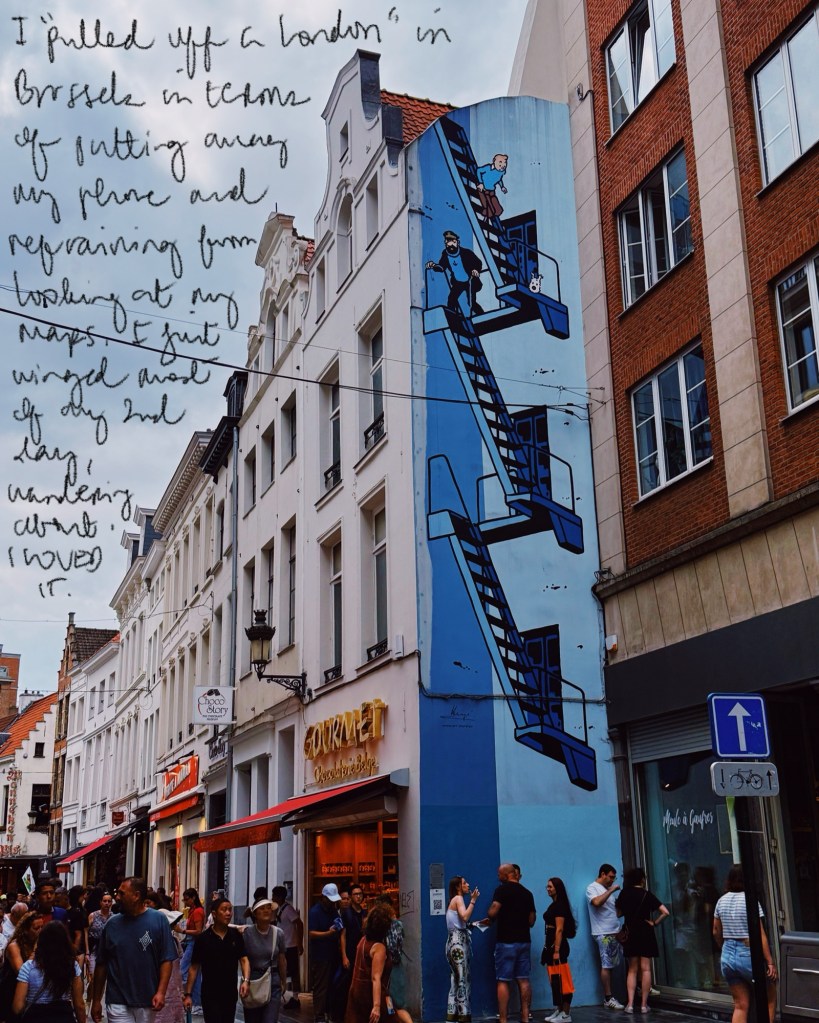 I "pulled off a London" in
Brussels in terms
of putting away
my phone and
refraining from
looking at my
maps. I just
winged most
of my 2nd
day,
wandering
about.
I LOVED
IT.
Choco
Story
GOURMET
Chocolaterie Belge
Made à Gaufres